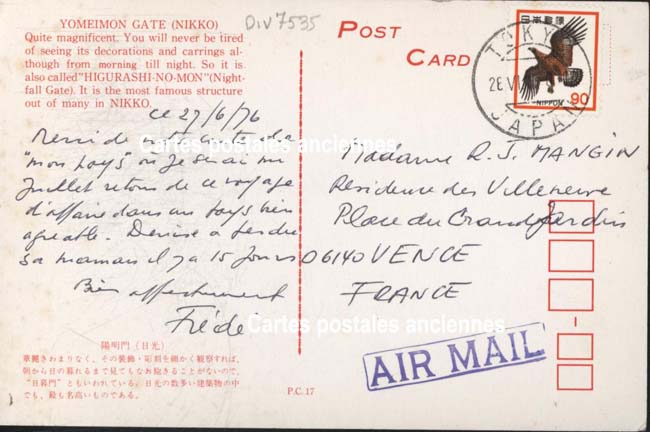 YOMEIMON GATE (NIKKO)
Quite magnificent. You will never be tired
of seeing its decorations and carrings al-
though from morning till night. So it is
also called "HIGURASHI-NO-MON" (Night-
fall Gate). It is the most famous structure
out of many in NIKKO.
DIV7535
POST
CARD
TOKYO
JAPAN
日本郵便
NIPPON
90
ce 27/6/76
Merci de ta carte de
"mon pays" où je serai mi
Juillet retour de ce voyage
d'affaire dans un pays bien
agréable. Denise a perdu
sa maman il y a 15 jours
Bien affectueusement
Frédé
Madame R. J. MANGIN
Résidence des Villeneuve
Place du Grand Jardin
06140 VENCE
FRANCE
AIR MAIL
陽明門（日光）
華麗きわまりなく、その装飾・彫刻を細かく観察すれば、
朝から日の暮れるまで見てもなお飽きることがないので、
"日暮門"ともいわれている。日光の数多い建築物の中
でも、最も名高いものである。
P.C. 17
Cartes postales anciennes
Cartes postales anciennes